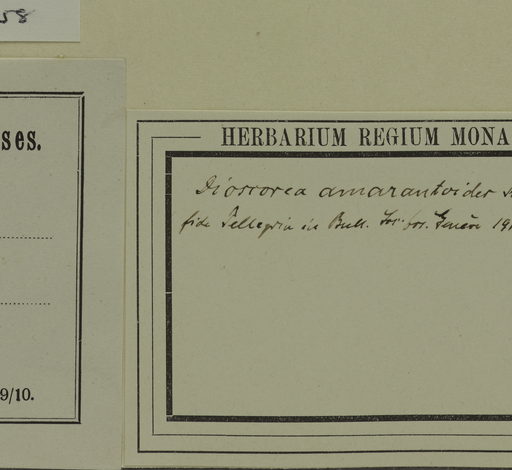 58
ses.
9/10.
HERBARIUM REGIUM MONA
Dioscorea amarantoides
fide Pellegrin in Bull. Soc. bot. Genève 191